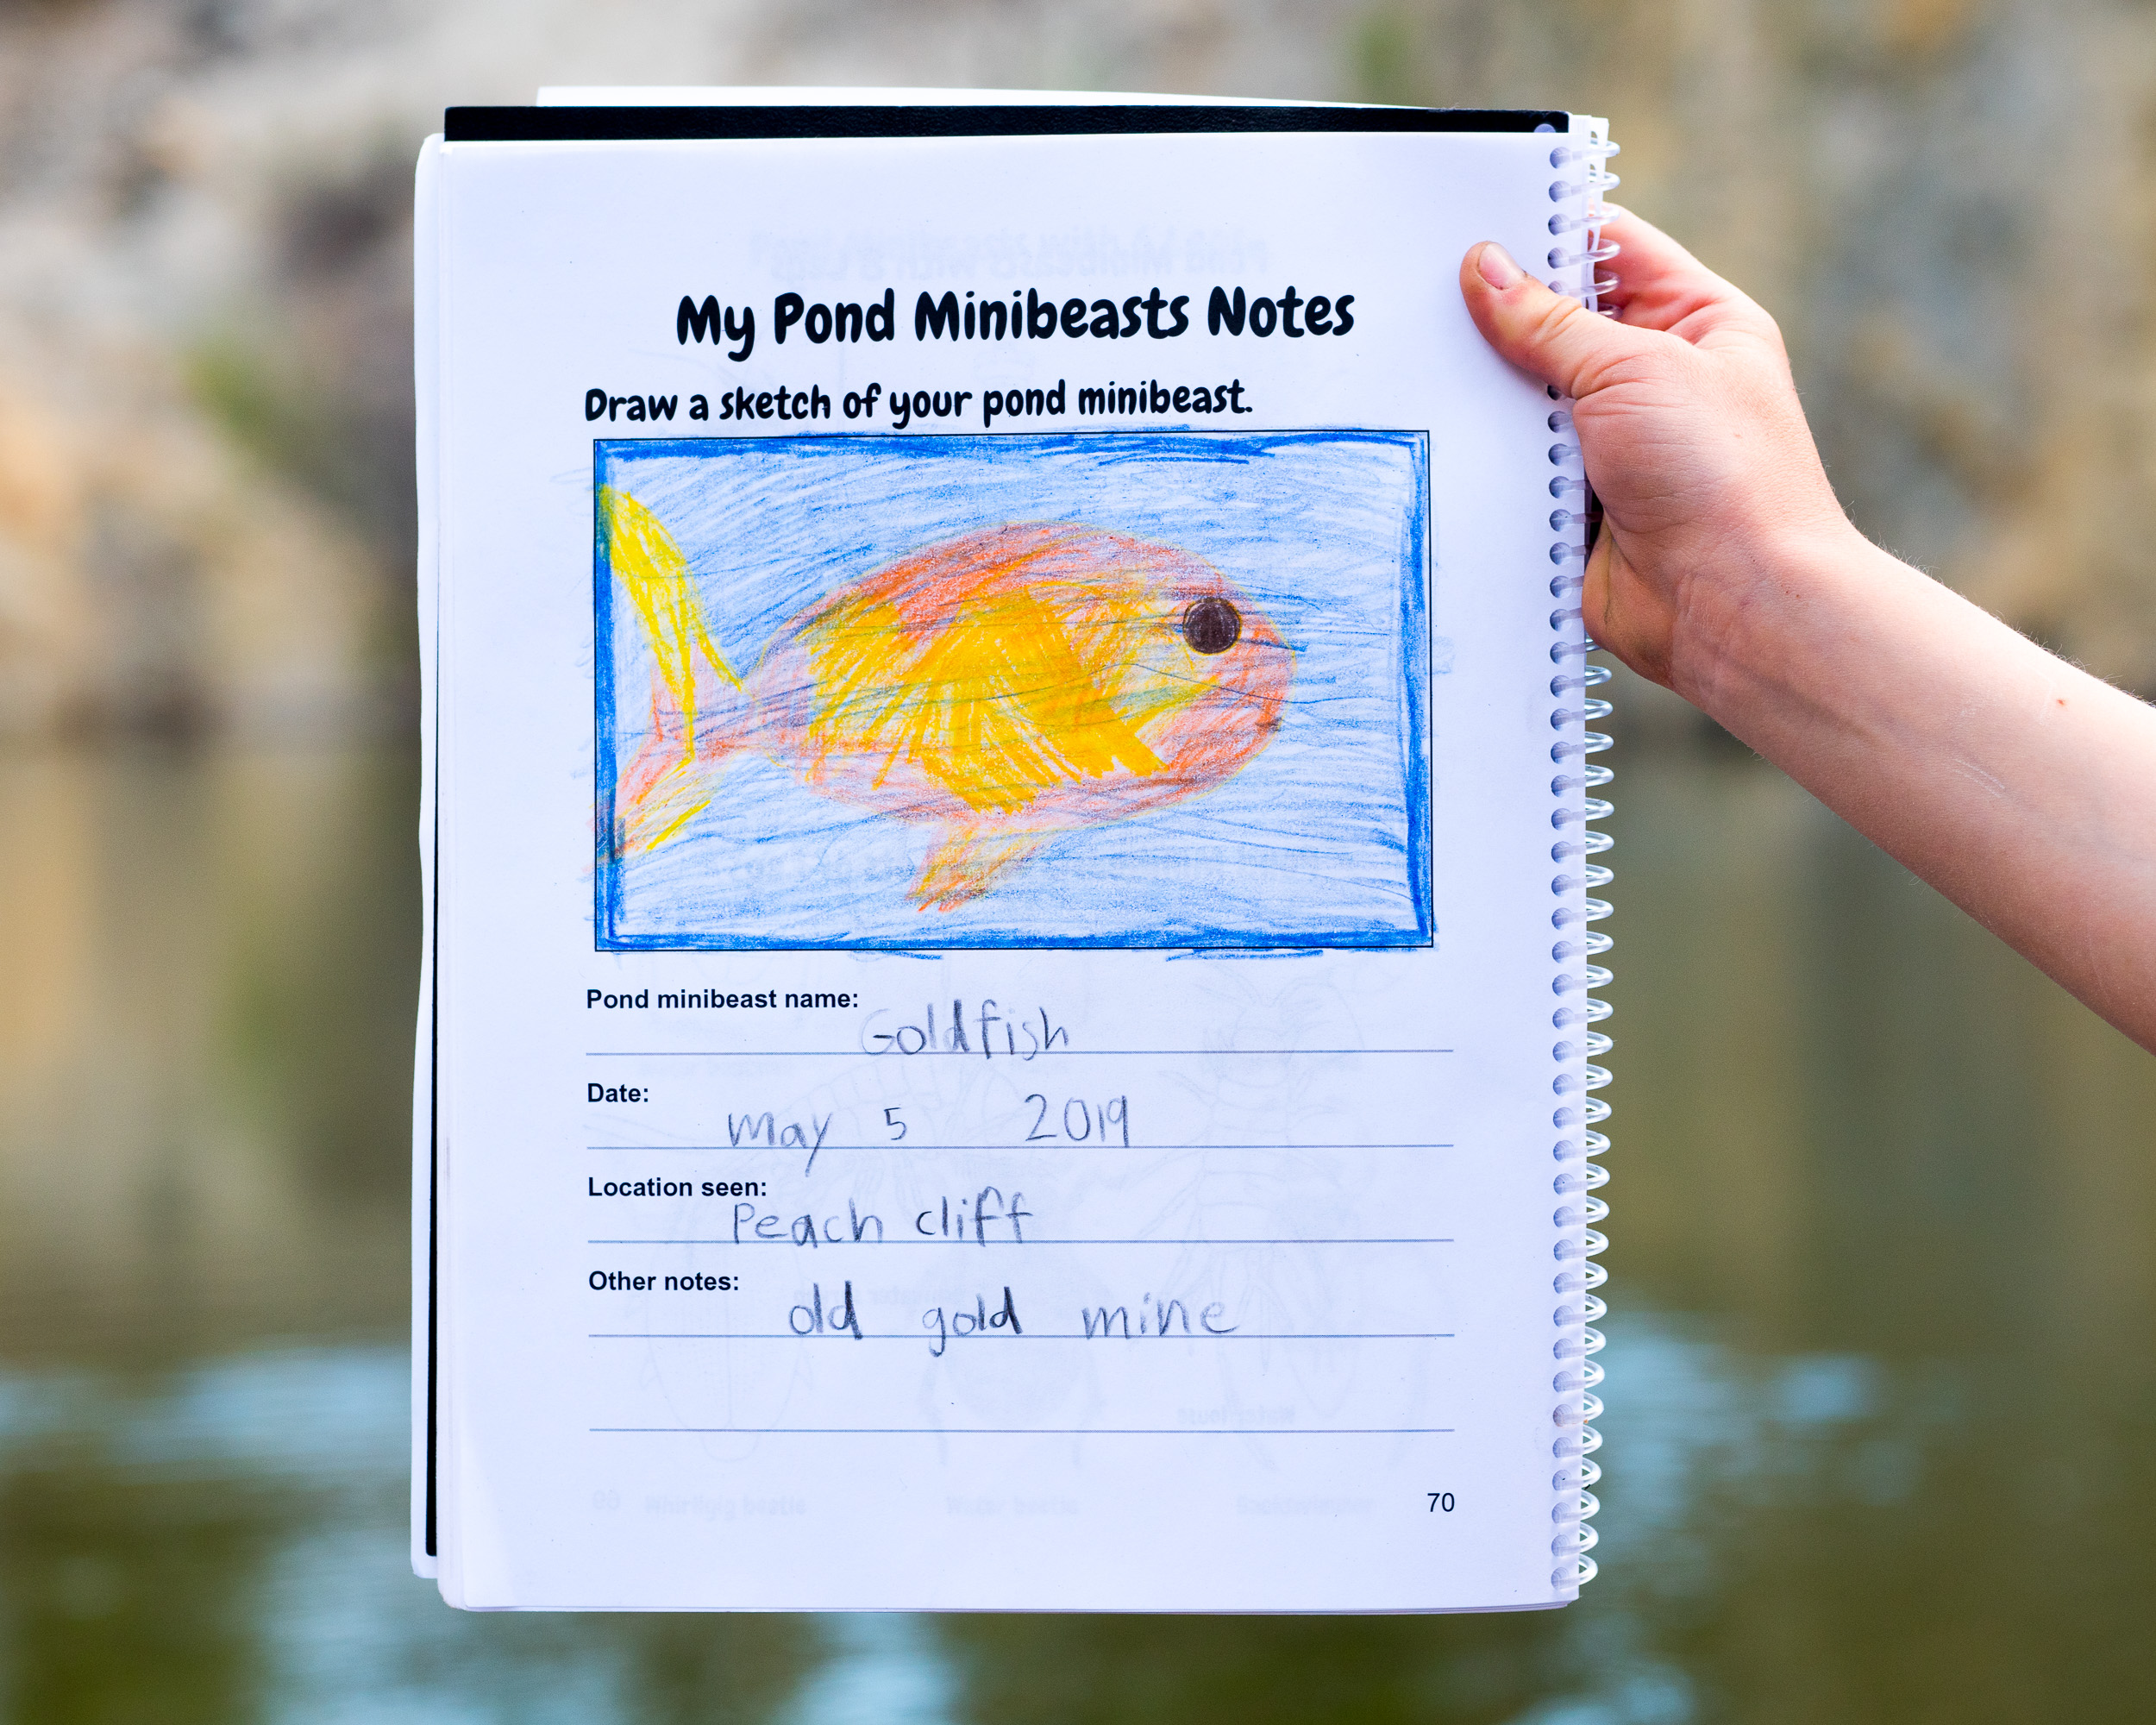 My Pond Minibeasts Notes
Draw a sketch of your pond minibeast.
Pond minibeast name:
Goldfish
Date:
may 5 2019
Location seen:
Peach cliff
Other notes:
old gold mine
70